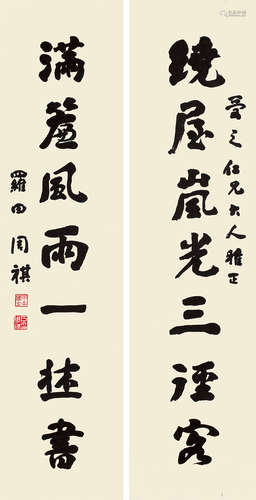 繞屋嵐光三徑客
之仁兄大人雅正
滿簾風雨一牀書
羅田周祺